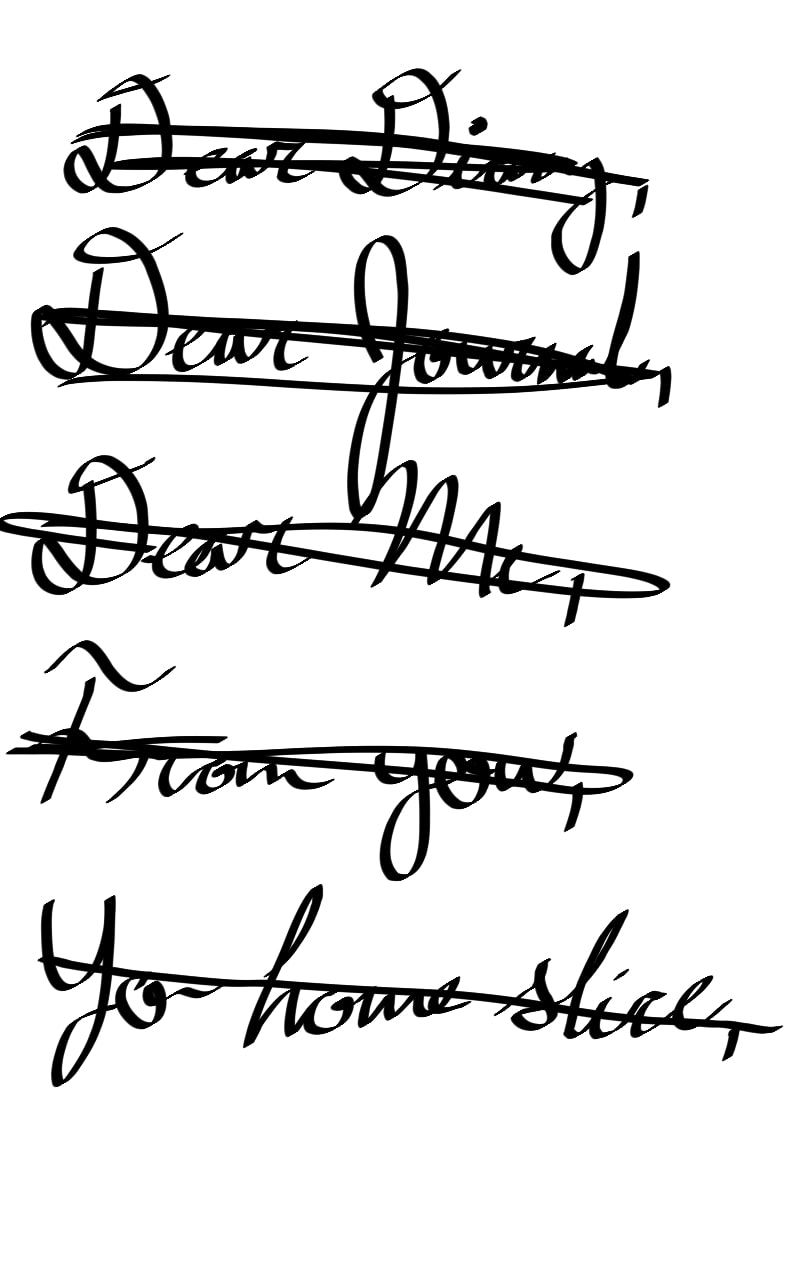 Dear Diary,
Dear Journal,
Dear Me,
From you,
Yo home slice,